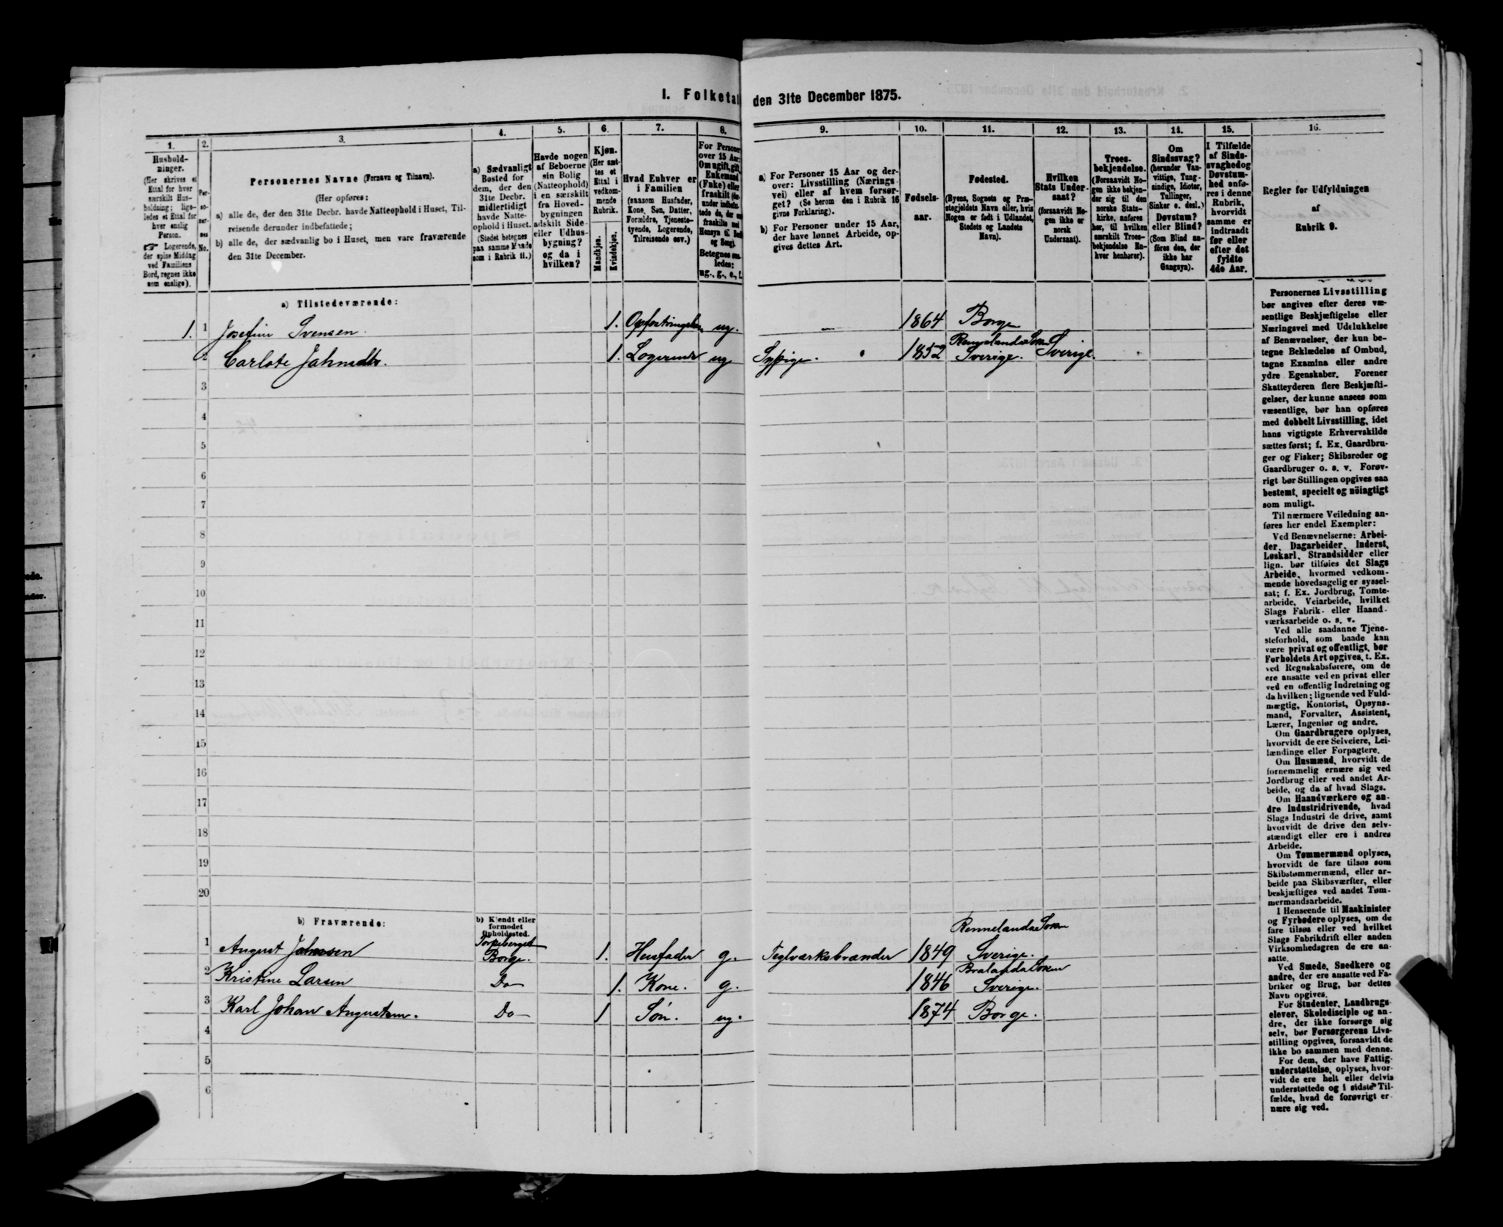 I. Folketal den 31te December 1875.
1. 2. 3. 4. 5. 6. 7. 8. 9. 10. 11. 12. 13. 14. 15. 16.
Hushold-
ninger.
(Her skrives et
Ettal for hver
særskilt Hus-
holdning; lige-
ledes et Ettal for
hver enslig
Person.
☞ Logerende,
der spise Middag
ved Familiens
Bord, regnes ikke
som enslige).
Per-
so-
ner-
nes
No.
Personernes Navne (Fornavn og Tilnavn).
(Her opføres:
a) alle de, der den 31te Decbr. havde Natteophold i Huset, Til-
reisende derunder indbefattede;
b) alle de, der sædvanlig bo i Huset, men vare fraværende
den 31te December.
a) Sædvanligt
Bosted for
dem, der den
31te Decbr.
midlertidigt
havde Natte-
ophold i Huset.
(Stedet betegnes
paa samme Maade
som i Rubrik 11.)
Havde nogen
af Beboerne
sin Bolig
(Natteophold)
i en særskilt
fra Hoved-
bygningen
adskilt Side-
eller Udhus-
bygning?
og da i
hvilken?
Kjøn.
(Her sæt-
tes et
Ettal i
vedkom-
mende
Rubrik.
Mandkjøn.
Kvindekjøn.
Hvad Enhver er
i Familien
(saasom Husfader,
Kone, Søn, Datter,
Forældre, Tjeneste-
tyende, Logerende,
Tilreisende osv.)
For Personer
over 15 Aar:
Om ugift, gift,
Enkemand
(Enke) eller
fraskilt
Betegnes saa-
ledes:
ug., g., e., f.
a) For Personer 15 Aar og der-
over: Livsstilling (Nærings-
vei) eller af hvem forsør-
get? (Se herom den i Rubrik 16
givne Forklaring).
b) For Personer under 15 Aar,
der have lønnet Arbeide, op-
gives dettes Art.
Fødsels-
aar.
Fødested.
(Byens, Sognets og Præ-
stegjeldets Navn eller, hvis
Nogen er født i Udlandet,
Stedets og Landets
Navn).
Hvilken
Stats Under-
saat?
(forsaavidt No-
gen ikke er
norsk
Undersaat).
Troes-
bekjendelse.
(Forsaavidt No-
gen ikke bekjen-
der sig til den
norske Stats-
kirke, anføres
her, til hvilken
særskilt Troes-
bekjendelse En-
hver henhører).
Om
Sindssvag?
(herunder Van-
vittige, Tung-
sindige, Idioter,
Tullinger,
Sinker o. desl.)
Døvstum?
eller Blind?
(Som Blind an-
føres den, der
ikke har
Gangsyn).
I Tilfælde
af Sinds-
svaghed og
Døvstum-
hed anfø-
res i denne
Rubrik,
hvorvidt
samme er
indtraadt
før eller
efter det
fyldte
4de Aar.
Regler for Udfyldningen
af
Rubrik 9.
a) Tilstedeværende:
1. 1 Josefine Svensen. 1. ug. - 1864 Borge
2 Carlote 1. Logerende ug Sypige. 1852 Sverige. Sverige.
3
4
5
6
7
8
9
10
11
12
13
14
15
16
17
18
19
20
b) Fraværende:
b) Kjendt eller
formodet
Opholdssted.
1 August Johnssen Torpeberget Borge. 1. Husfader g. Teglværksbrænder 1849 Rennelanda Sokn Sverige.
2 Kristine Larsen Do 1. Kone. g. 1846 Bralanda Sokn Sverige.
3 Karl Johan Augustsen. Do 1 Søn. ug. 1874 Borge.
4
5
6
Personernes Livsstilling
bør angives efter deres væ-
sentlige Beskjæftigelse eller
Næringsvei med Udelukkelse
af Benævnelser, der kun be-
tegne Beklædelse af Ombud,
tagne Examina eller andre
ydre Egenskaber. Forener
Skatteyderen flere Beskjæfti-
gelser, der kunne ansees som
væsentlige, bør han opføres
med dobbelt Livsstilling, idet
hans vigtigste Erhvervskilde
sættes først; f. Ex. Gaardbru-
ger og Fisker; Skibsreder og
Gaardbruger o. s. v. Forøv-
rigt bør Stillingen opgives saa
bestemt, specielt og nöiagtigt
som muligt.
Til nærmere Veiledning an-
føres her endel Exempler:
Ved Benævnelserne: Arbei-
der, Dagarbeider, Inderst,
Løskarl, Strandsidder eller
lign. bør tilføies det Slags
Arbeide, hvormed vedkom-
mende hovedsagelig er syssel-
sat; f. Ex. Jordbrug, Tomte-
arbeide, Veiarbeide, hvilket
Slags Fabrik- eller Haand-
værksarbeide o. s. v.
Ved alle saadanne Tjene-
steforhold, som baade kan
være privat og offentligt, bør
Forholdets Art opgives, f. Ex.
ved Regnskabsførere, om de
ere ansatte ved en privat eller
ved en offentlig Indretning og
da hvilken; lignende ved Fuld-
mægtig, Kontorist, Opsyns-
mand, Forvalter, Assistent,
Lærer, Ingeniør og andre.
Om Gaardbrugere oplyses,
hvorvidt de ere Selveiere, Lei-
lændinge eller Forpagtere.
Om Husmænd, hvorvidt de
fornemmelig ernære sig ved
Jordbrug eller ved andet Ar-
beide, og da af hvad Slags.
Om Haandværkere og an-
dre Industridrivende, hvad
Slags Industri de drive, samt
hvorvidt de drive den selv-
stændigt eller ere i andres
Arbeide.
Om Tømmermænd oplyses,
hvorvidt de fare tilsøs som
Skibstømmermænd, eller ar-
beide paa Skibsværfter, eller
beskjæftiges ved andet Tøm-
mermandsarbeide.
I Henseende til Maskinister
og Fyrbødere oplyses, om de
fare tilsøs eller ved hvilket
Slags Fabrikdrift eller anden
Virksomhedsgren de ere an-
satte.
Ved Smede, Snedkere og
andre, der ere ansatte ved Fa-
briker og Brug, bør dettes
Navn opgives.
For Studenter, Landbrugs-
elever, Skoledisciple og an-
dre, der ikke forsørge sig
selv, bør Forsørgerens Livs-
stilling opgives, forsaavidt de
ikke bo sammen med denne.
For dem, der have Fattig-
understøttelse, oplyses, hvor-
vidt de ere helt eller delvis
understøttede og i sidste Til-
fælde, hvad de forøvrigt er-
nære sig ved.